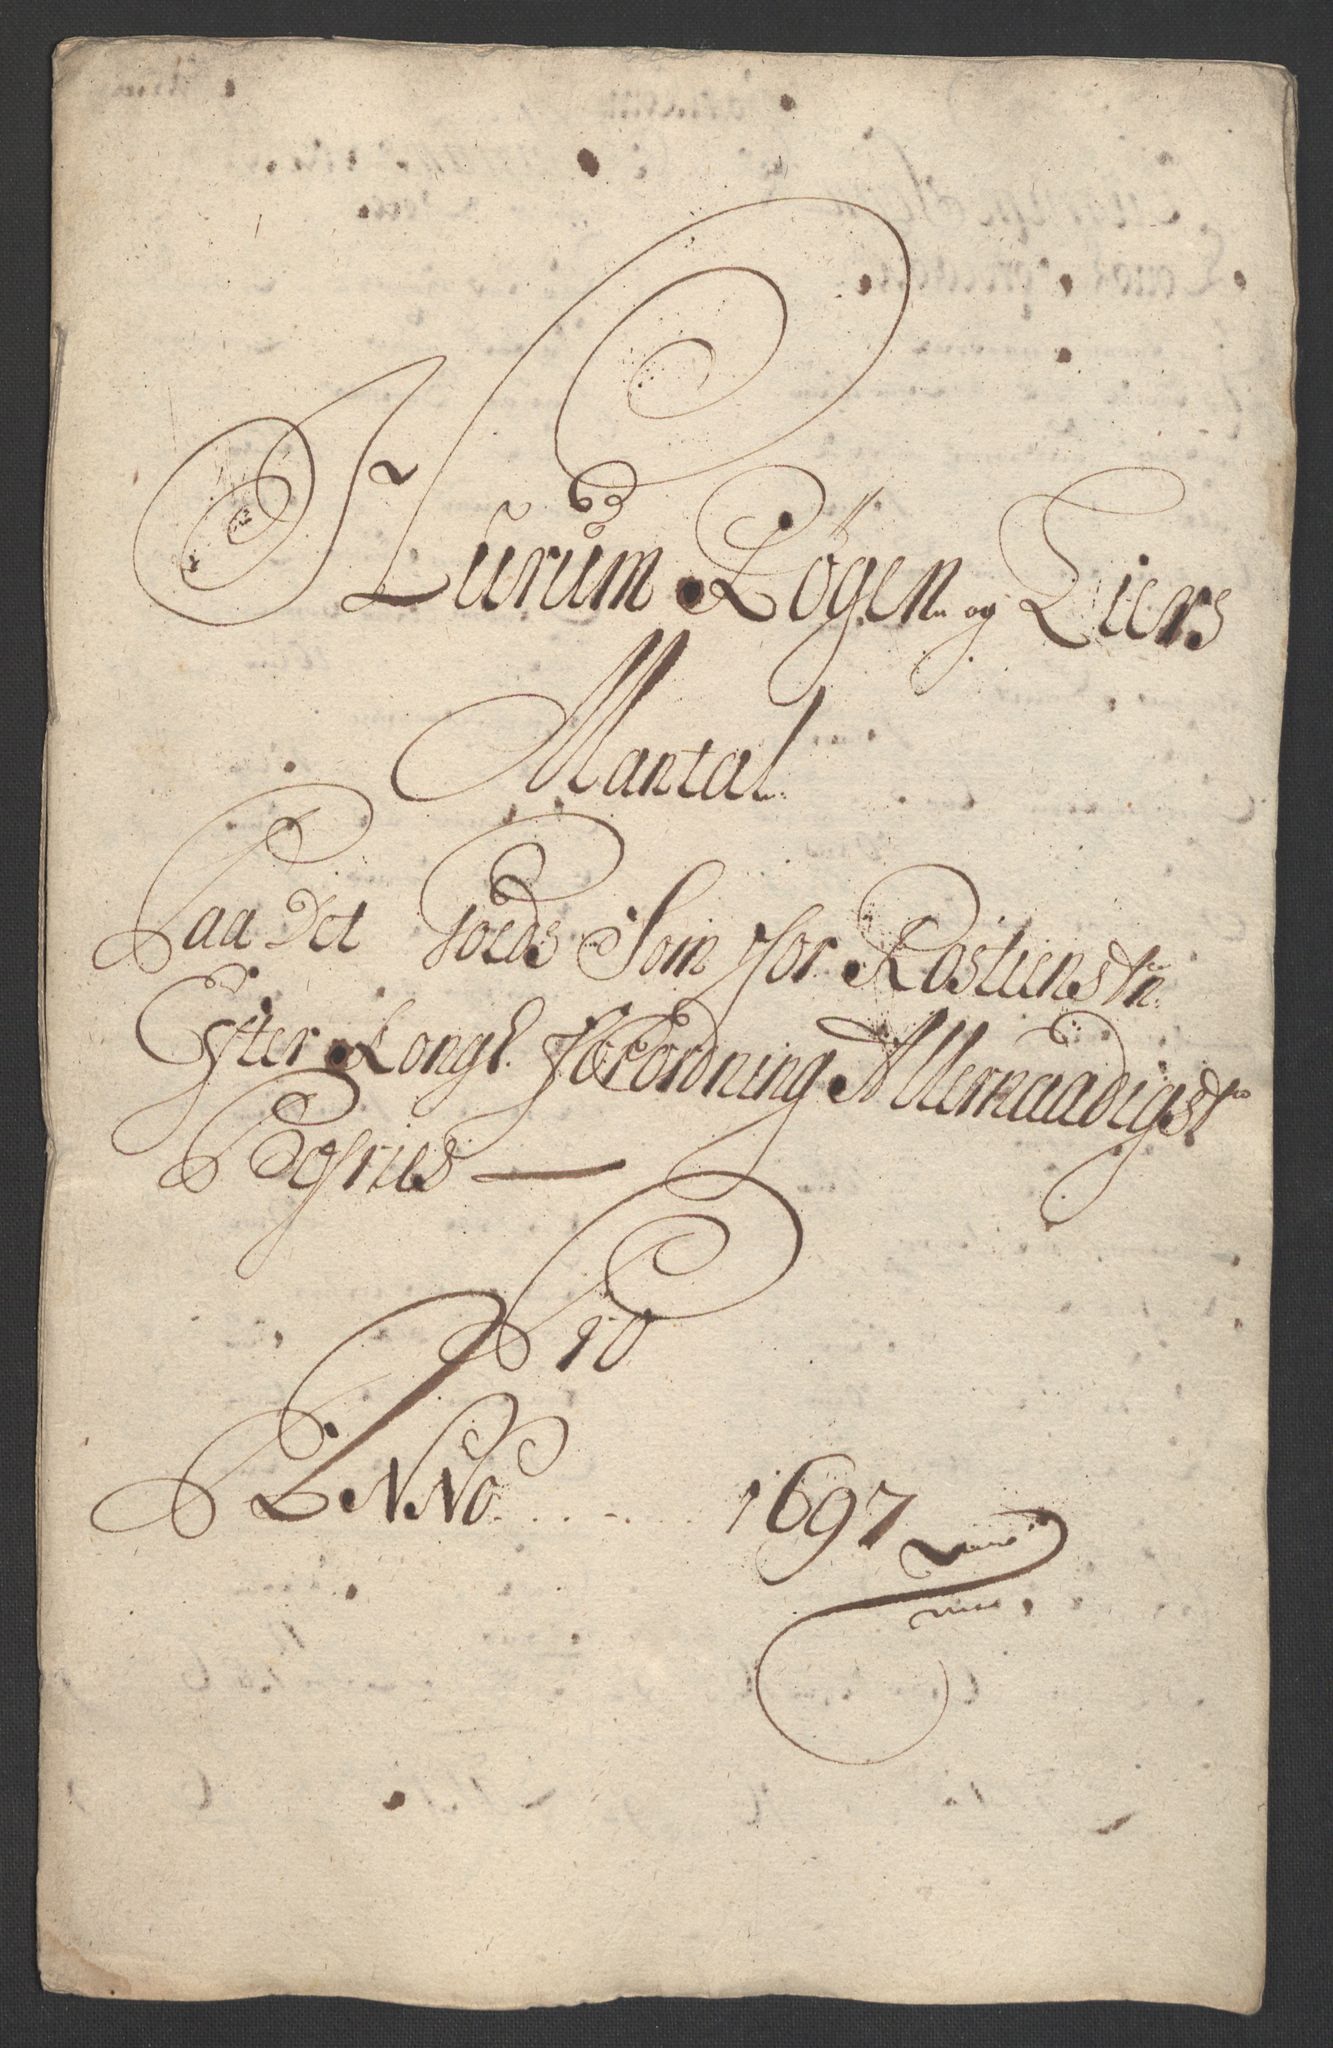 Hurum Røgen og Liers
Mantal
Paa Det Goeds Som for Rostienstn
Efter Kongl. forordning Allernaadigste
Befries —
Pro
ANNo ..... 1697